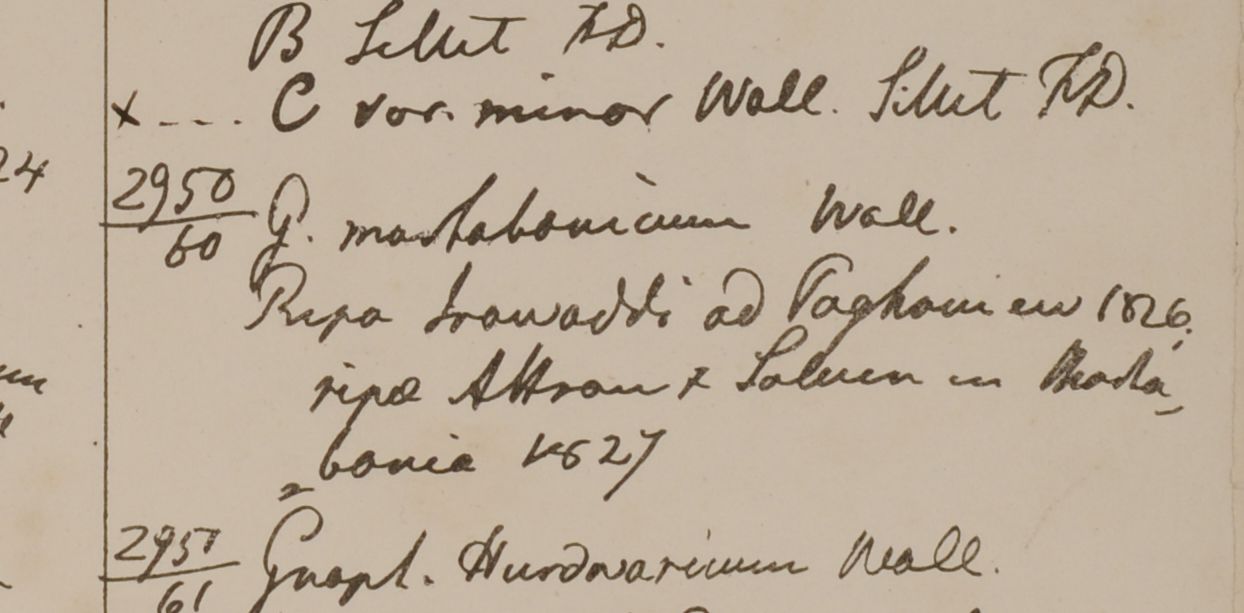 B Sillet F.D.
x - - - C var. minor Wall. Sillet F.D.
24
2950
60 G. martabanicum Wall.
Ripa Irawaddi ad Paghamiew 1826.
ripæ Attran & Saluen in Marta
bania 1827
2951
61 Gnaph. Hurdwaricum Wall.